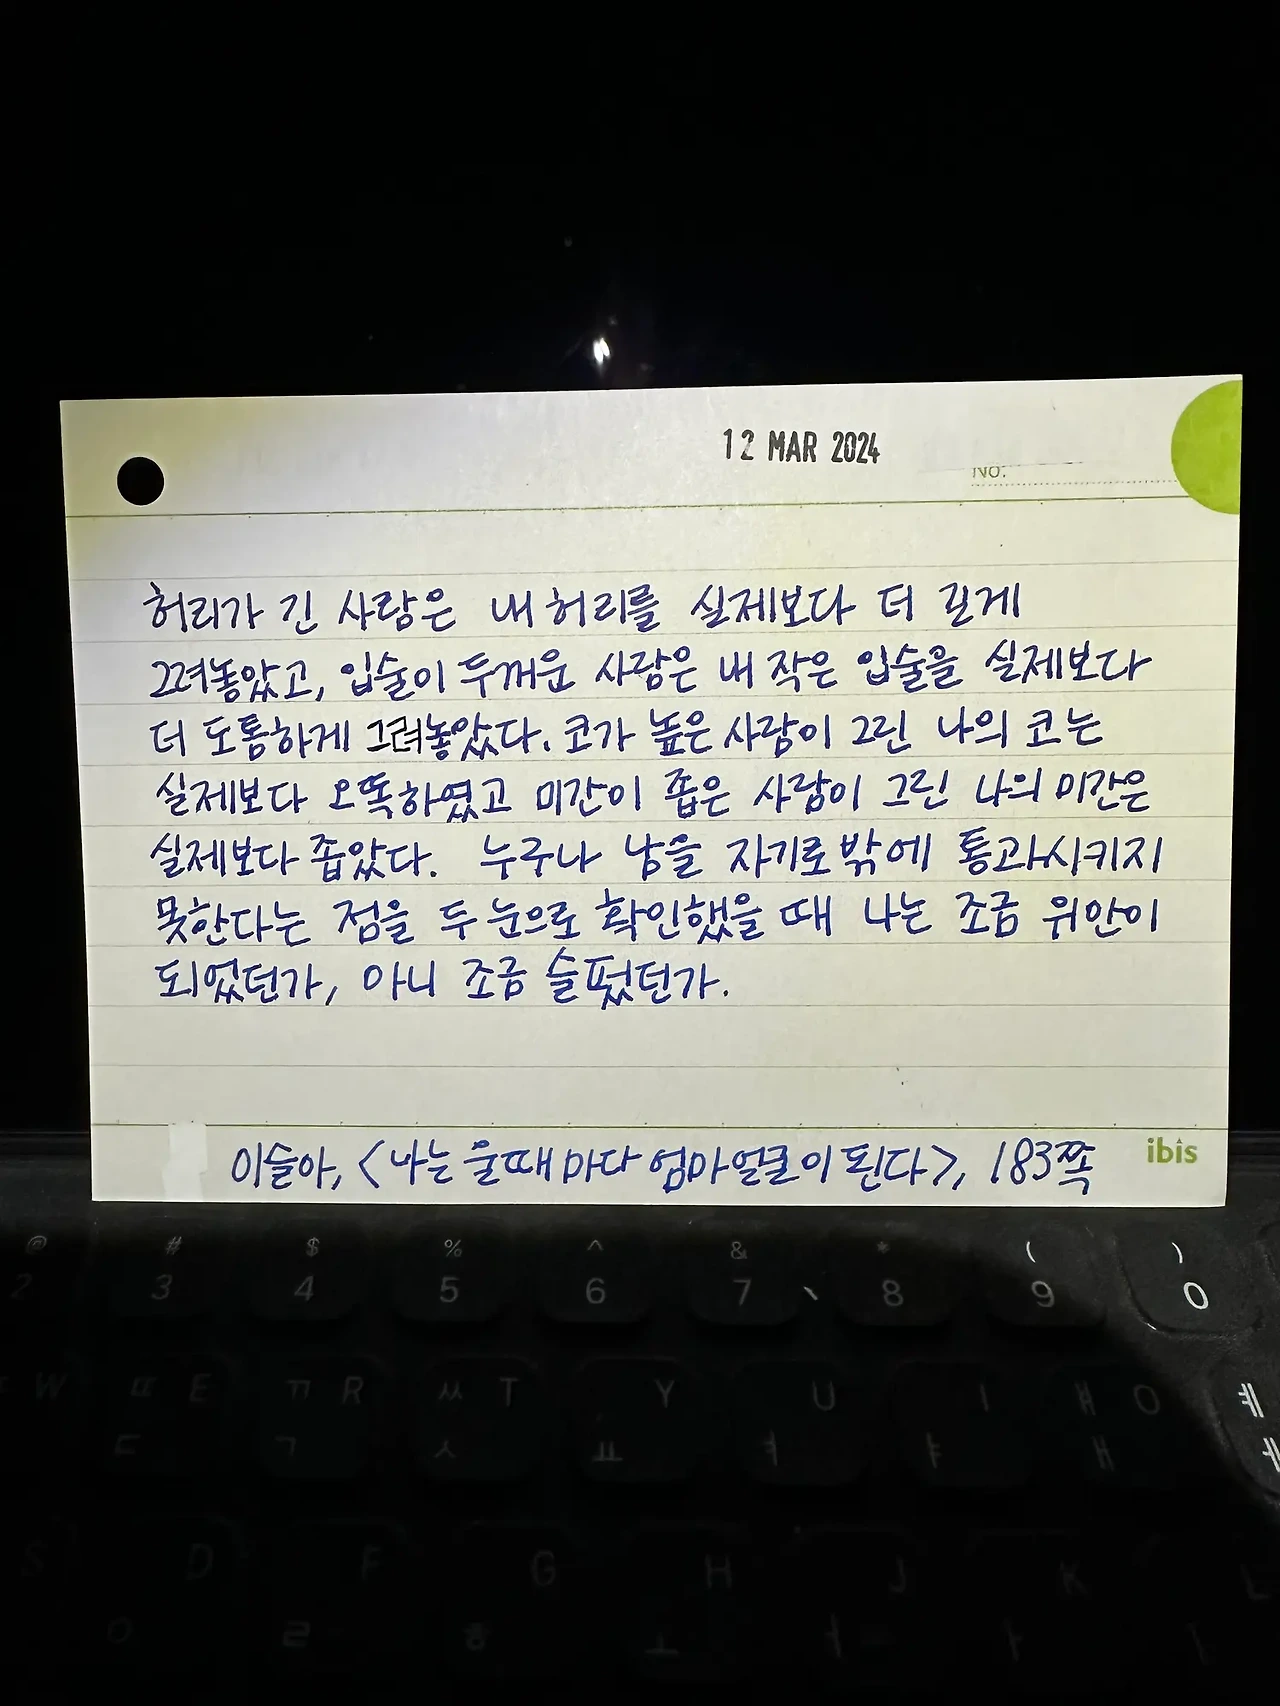 12 MAR 2024
NO.
허리가 긴 사람은 내 허리를 실제보다 더 길게
그려놓았고, 입술이 두꺼운 사람은 내 작은 입술을 실제보다
더 도톰하게 그려놓았다. 코가 높은 사람이 그린 나의 코는
실제보다 오똑하였고 미간이 좁은 사람이 그린 나의 미간은
실제보다 좁았다. 누구나 남을 자기로밖에 통과시키지
못한다는 점을 두 눈으로 확인했을 때 나는 조금 위안이
되었던가, 아니 조금 슬펐던가.
이슬아, <나는 울때마다 엄마얼굴이 된다>, 183쪽
ibis
@ # $ % ^ & * ( )
2 3 4 5 6 7 8 9 0
W ㄸ E ㄲ R ㅆ T Y U I ㅒ O ㅖ
ㄷ ㄱ ㅅ ㅛ ㅕ ㅑ ㅐ ㅔ
S D F G H J K L
ㅇ ㄹ ㅎ ㅗ ㅓ ㅏ ㅣ